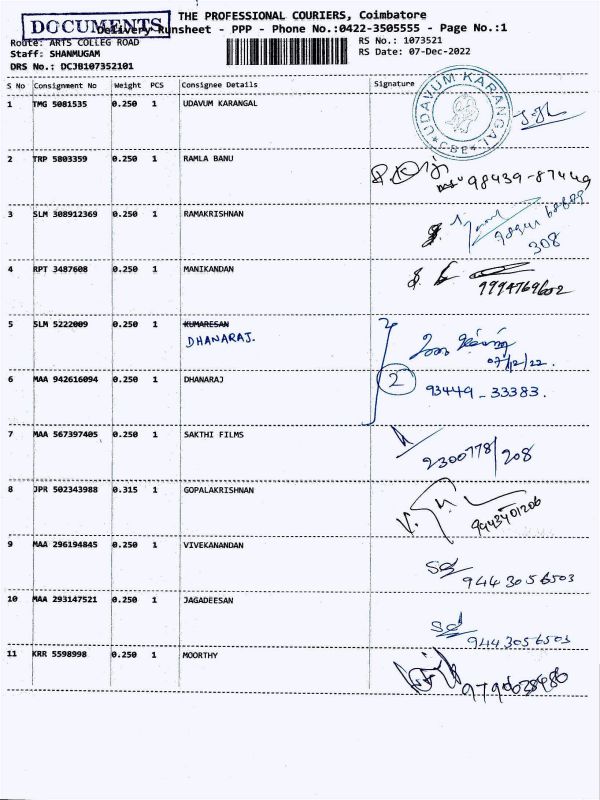 DOCUMENTS
THE PROFESSIONAL COURIERS, Coimbatore
Delivery Runsheet - PPP - Phone No.:0422-3505555 - Page No.:1
Route: ARTS COLLEG ROAD
Staff: SHANMUGAM
DRS No.: DCJB107352101
RS No.: 1073521
RS Date: 07-Dec-2022
S No Consignment No Weight PCS Consignee Details Signature
1 TMG 5081535 0.250 1 UDAVUM KARANGAL
UDAVUM KARANGAL
CBE
2 TRP 5803359 0.250 1 RAMLA BANU
98439-87449
3 SLM 308912369 0.250 1 RAMAKRISHNAN
308
4 RPT 3487608 0.250 1 MANIKANDAN
9994769602
5 SLM 5222009 0.250 1 KUMARESAN
DHANARAJ.
07/12/22.
6 MAA 942616094 0.250 1 DHANARAJ
2
93449-33383.
7 MAA 567397405 0.250 1 SAKTHI FILMS
2300778/208
8 JPR 502343988 0.315 1 GOPALAKRISHNAN
9443401206
9 MAA 296194845 0.250 1 VIVEKANANDAN
9443056503
10 MAA 293147521 0.250 1 JAGADEESAN
9443056503
11 KRR 5598998 0.250 1 MOORTHY